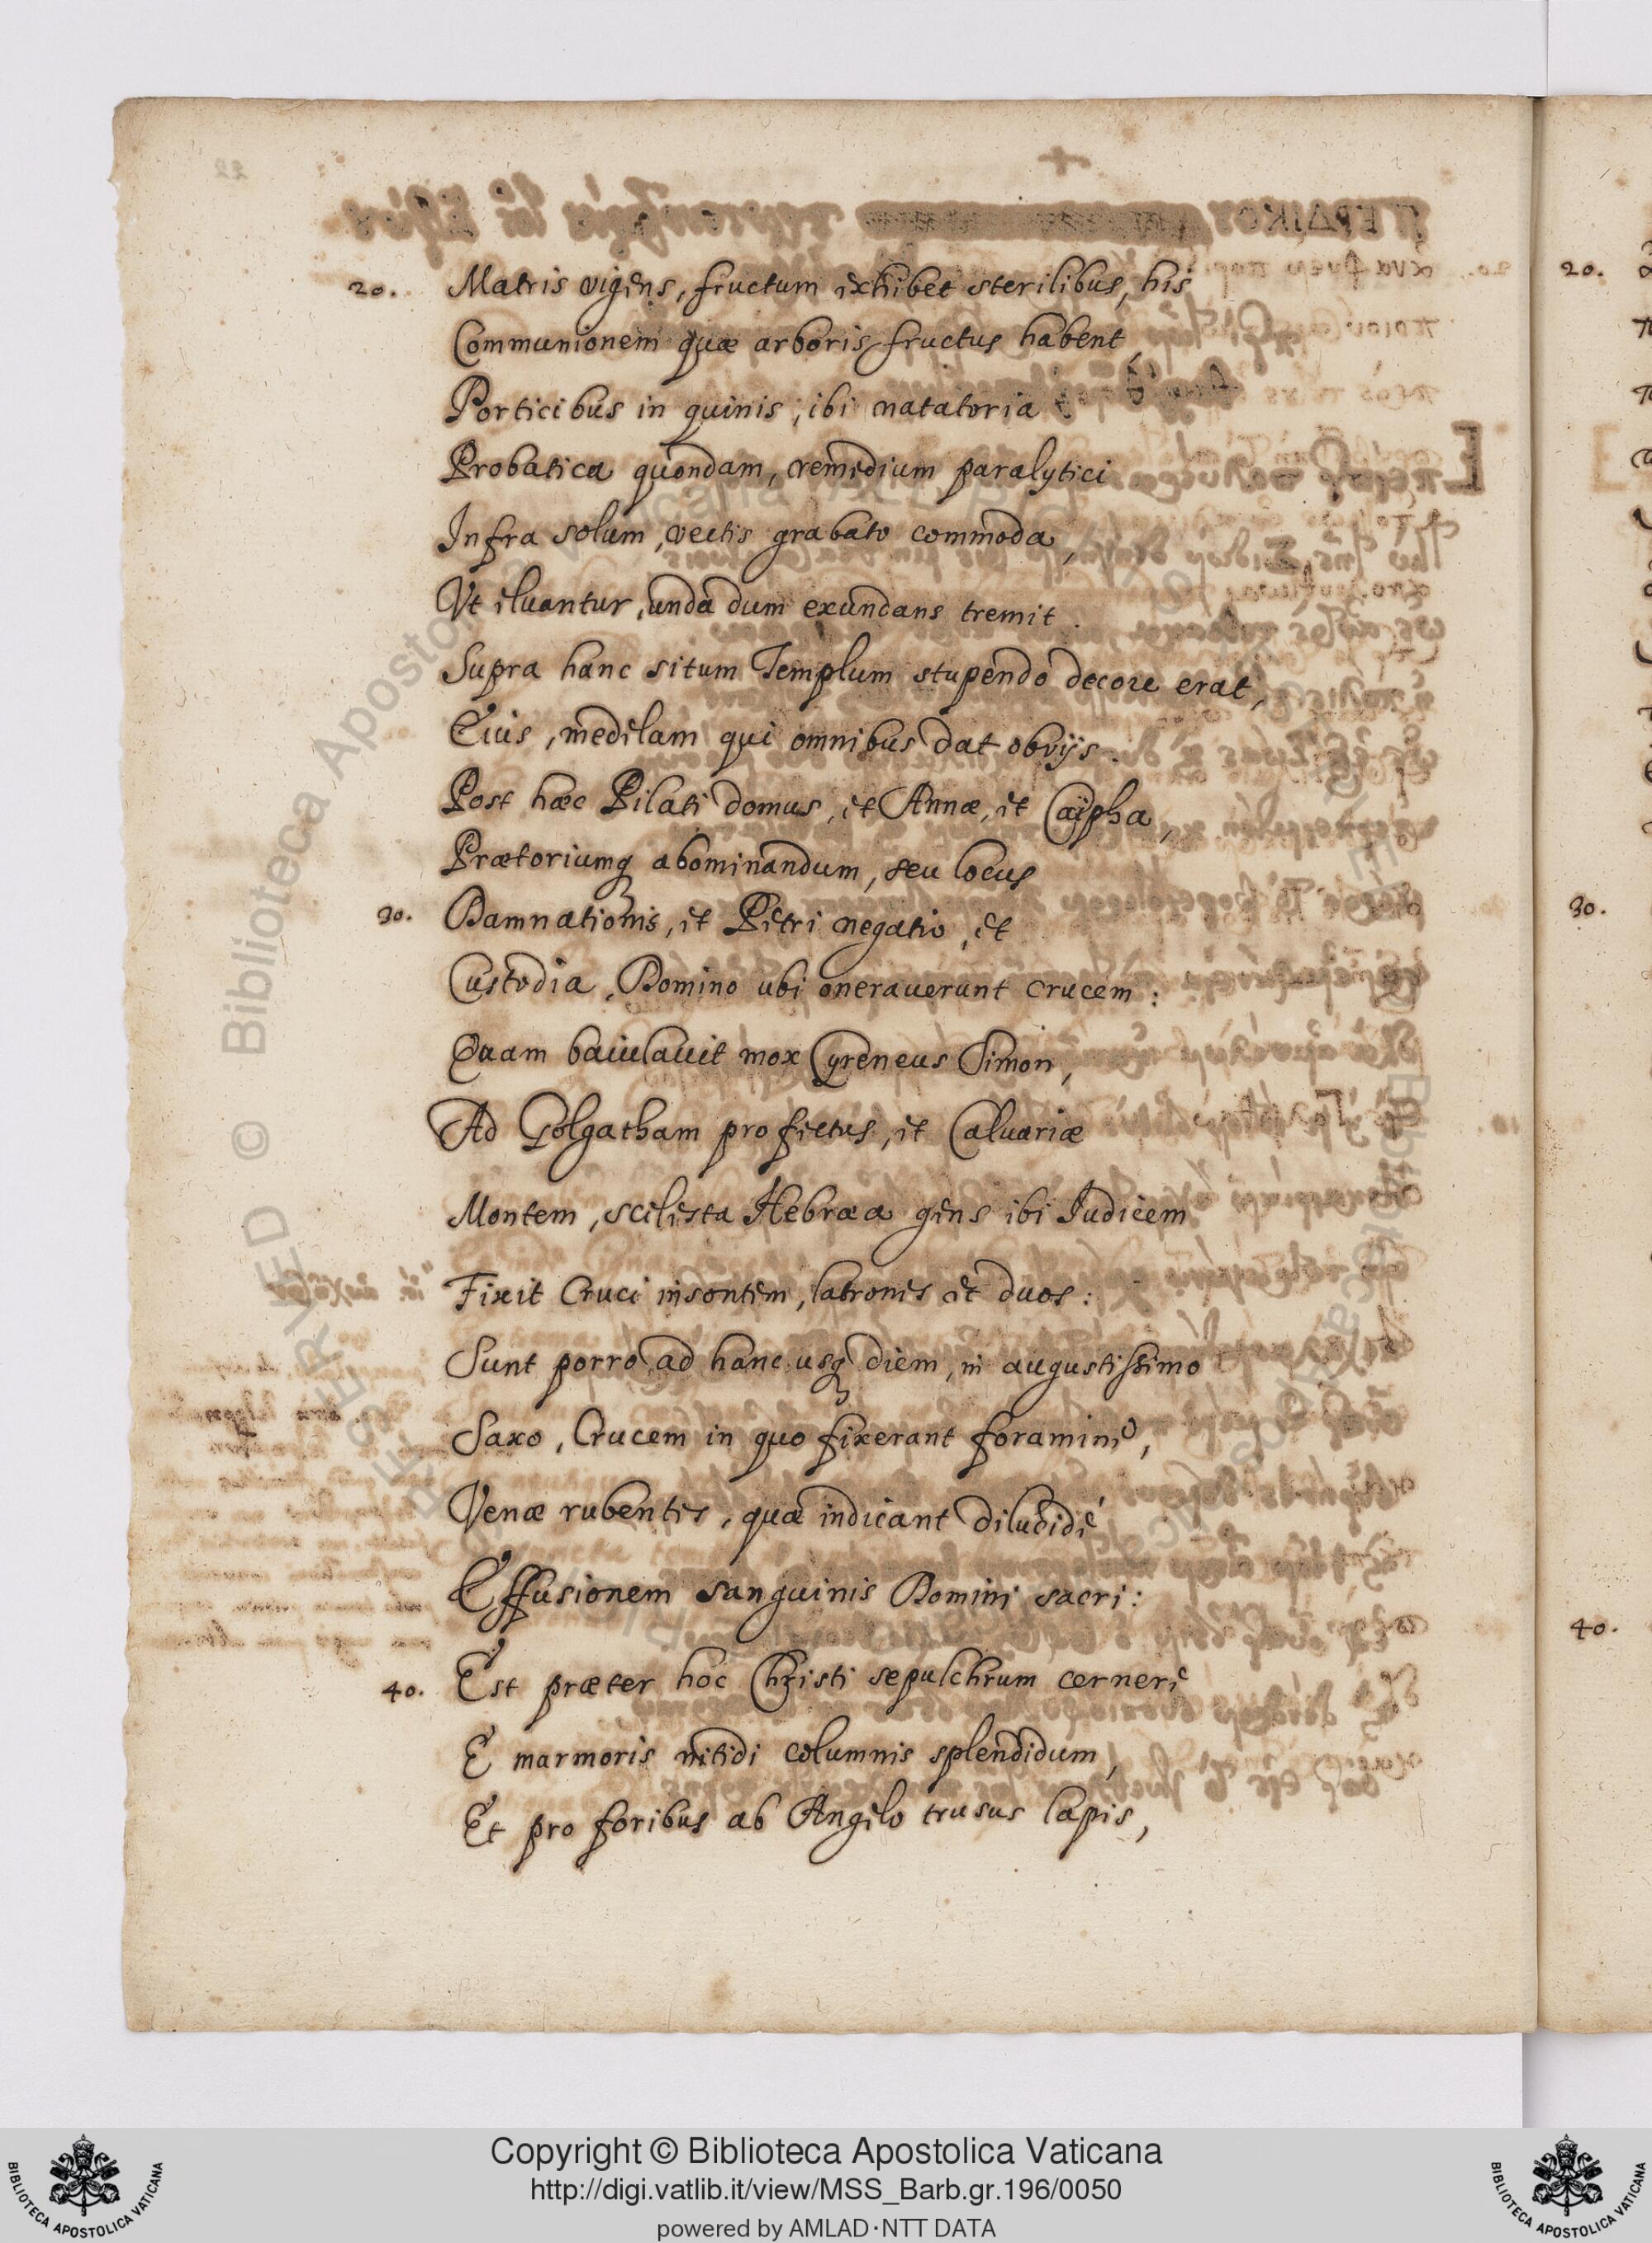 20. Matris vigens, fructum exhibet sterilibus, his
Communionem quæ arboris fructus habent,
Porticibus in quinis, ibi natatoria
Probatica quondam, remedium paralytici
Infra solum, vectis grabato commoda,
Vt eluantur, unda dum exundans tremit.
Supra hanc situm Templum stupendo decore erat,
Eius, medelam qui omnibus dat obvijs.
Post hæc Pilati domus, et Annæ, et Caypha,
Prætoriumq abominandum, seu locus
30. Damnationis, et Petri negatio, et
Custodia, Domino ubi onerauerunt crucem:
Quam baiulauit mox Cyreneus Simon,
Ad Golgatham profectus, et Caluariæ
Montem, scelesta Hebræa gens ibi Iudicem
Fixit Cruci insontem, latrones et duos:
Sunt porro ad hanc usq diem, in augustissimo
Saxo, Crucem in quo fixerant foramine,
Venæ rubentes, quæ indicant dilucidè
Effusionem sanguinis Domini sacri:
40. Est præter hoc Christi sepulchrum cernere
E marmoris nitidi columnis splendidum,
Et pro foribus ab Angelo trusus lapis,
20.
30.
40.
Copyright © Biblioteca Apostolica Vaticana
http://digi.vatlib.it/view/MSS_Barb.gr.196/0050
powered by AMLAD·NTT DATA
BIBLIOTECA APOSTOLICA VATICANA
BIBLIOTECA APOSTOLICA VATICANA